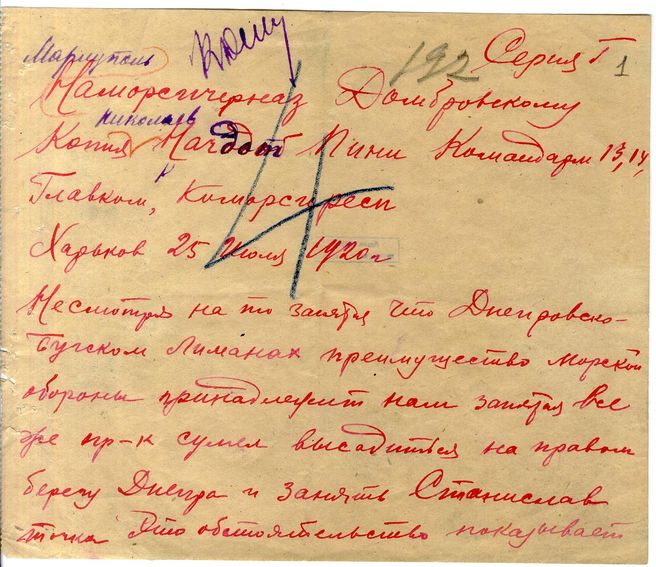 Мариуполь К делу 192 Серия Г 1
Наморсичерназ Домбровскому
николаев
Копия Начббот Пини Командарм 13, 14,
Главком, Коморси респ
Харьков 25 Июля 1920 г
Несмотря на то запятая что Днепровско-
Бугском Лиманах преимущество Морской
обороны принадлежит нам запятая все
же пр-к сумел высадиться на правом
берегу Днепра и занять Станислав
точка Это обстоятельство показывает